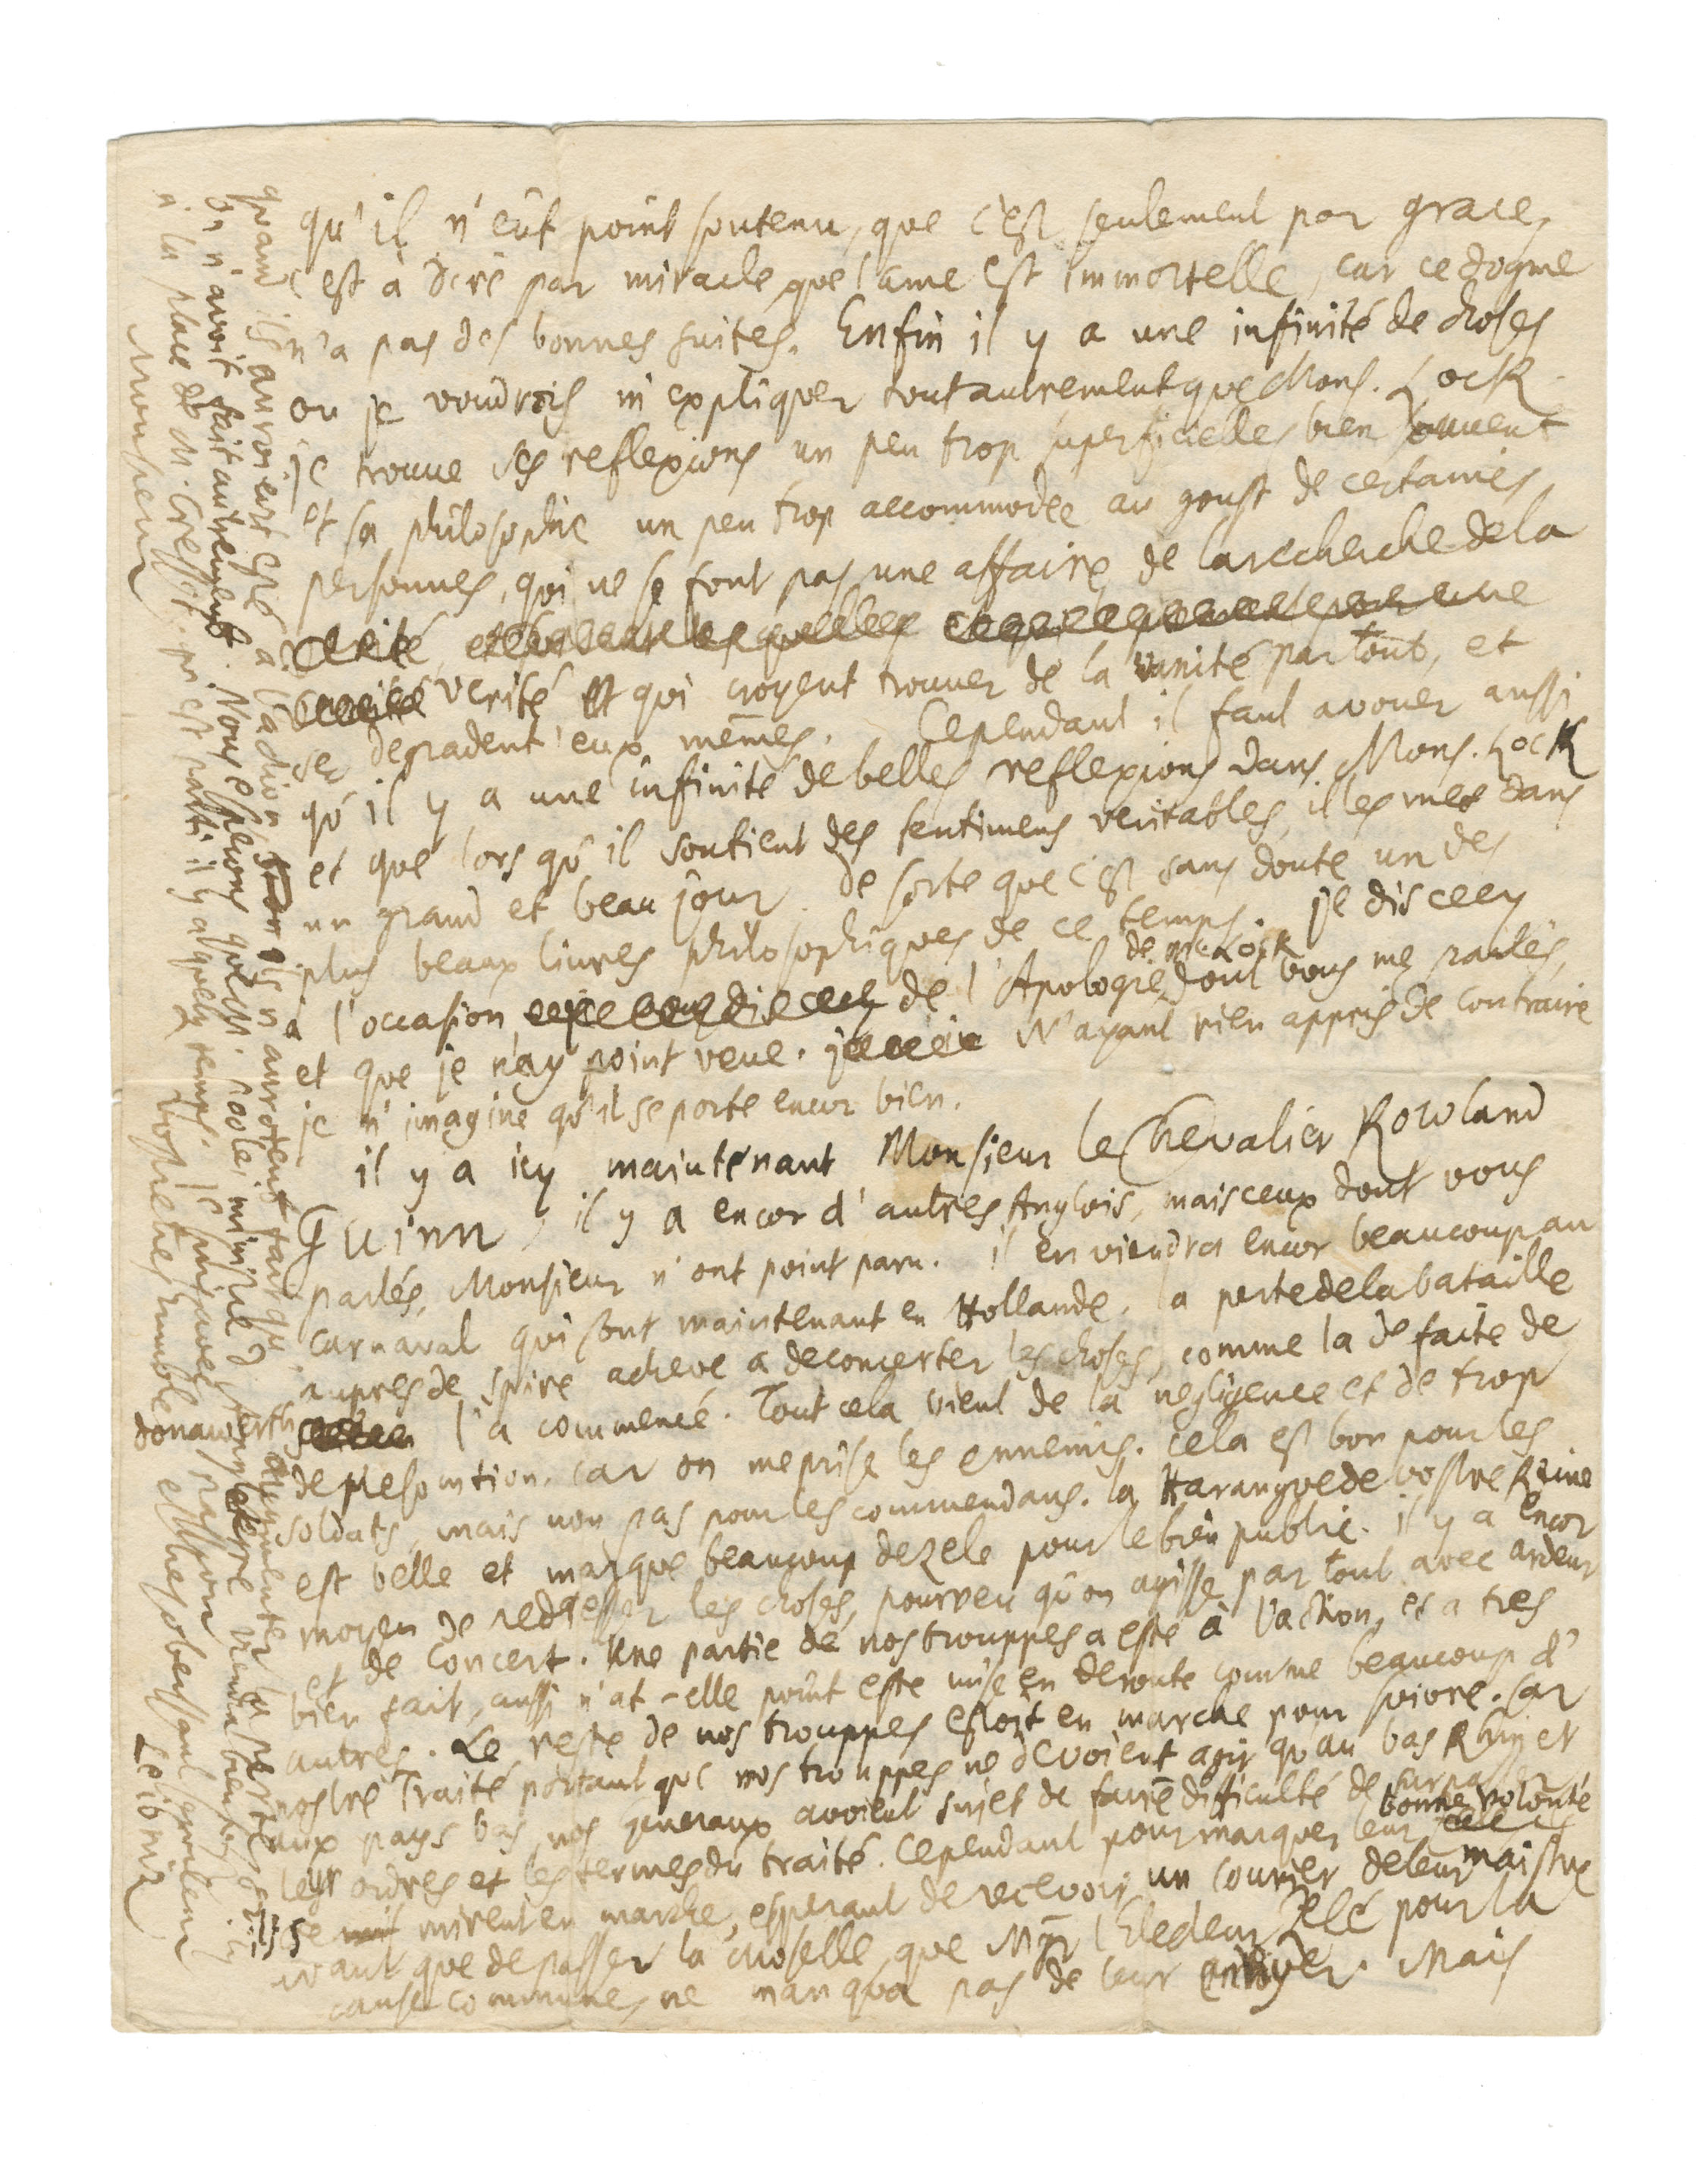 qu'il n'eût point soutenu, que c'est seulement par grace,
c'est à dire par miracle que l'ame est immortelle, car ce dogme
n'a pas des bonnes suites. Enfin il y a une infinité de choses
ou je voudrois m'expliquer tout autrement que Mons. Lock
je trouve ses reflexions un peu trop superficielles bien souuent
et sa philosophie un peu trop accommodée au goust de certaines
personnes, qui ne se font pas une affaire de la recherche de la
verité et qui croyent trouuer de la vanité par tout, et
se degradent eux mêmes. Cependant il faut avouer aussi
qu'il y a une infinité de belles reflexions dans Mons. Lock
et que lors qu'il soutient des sentimens veritables, il les met dans
un grand et beau jour. De sorte que c'est sans doute un des
plus beaux liures philosophiques de ce temps. je dis cecy
à l'occasion de l'Apologie de M. Lock dont vous me parlés,
et que je n'ay point veue. N'ayant rien appris de contraire
je m'imagine qu'il se porte encor bien.
il y a icy maintenant Monsieur le Chevalier Rowland
Guinn, il y a encor d'autres Anglois, mais ceux dont vous
parlés, Monsieur n'ont point paru. il en viendra encor beaucoup au
carnaval qui sont maintenant en Hollande. la perte de la bataille
aupres de Spire acheve à deconcerter les choses, comme la defaite de
donawerth l'a commencé. Tout cela vient de la negligence et de trop
de presomtion. car on meprise les ennemis. cela est bon pour les
soldats, mais non pas pour les commendans. la Harangue de vostre Reine
est belle et marque beaucoup de zele pour le bien public. il y a encor
moyen de redresser les choses, pourveu qu'on agisse par tout avec ardeur
et de concert. Une partie de nos trouppes a esté à l'action, et a tres
bien fait, aussi n'at-elle point esté mise en deroute comme beaucoup d'
autres. Le reste de nos trouppes estoit en marche pour suivre. car
nostre Traité portant que nos trouppes ne devoient agir qu'au bas Rhin et
aux pays bas, nos generaux avoient sujet de faire difficulté de surpasser
leur ordres et les termes du traité. Cependant pour marquer leur bonne volonté
ils se mirent en marche, esperant de recevoir un courier de leur maistre
avant que de passer la Moselle, que Mgr l'Electeur zelé pour la
cause commune, ne manqua pas de leur envoyer. Mais
quand ils auroient esté à l'action ils n'auroient fait qu'augmenter la perte, si
on n'avoit fait autrement. Nous esperons que M. Poole, ministre d'Angleterre viendra bientost icy
à la place de M. Cresset, qui est parti il y a quelque temps. je suis avec passion
Monsieur
Vostre tres humble et tres obeissant serviteur
Leibniz